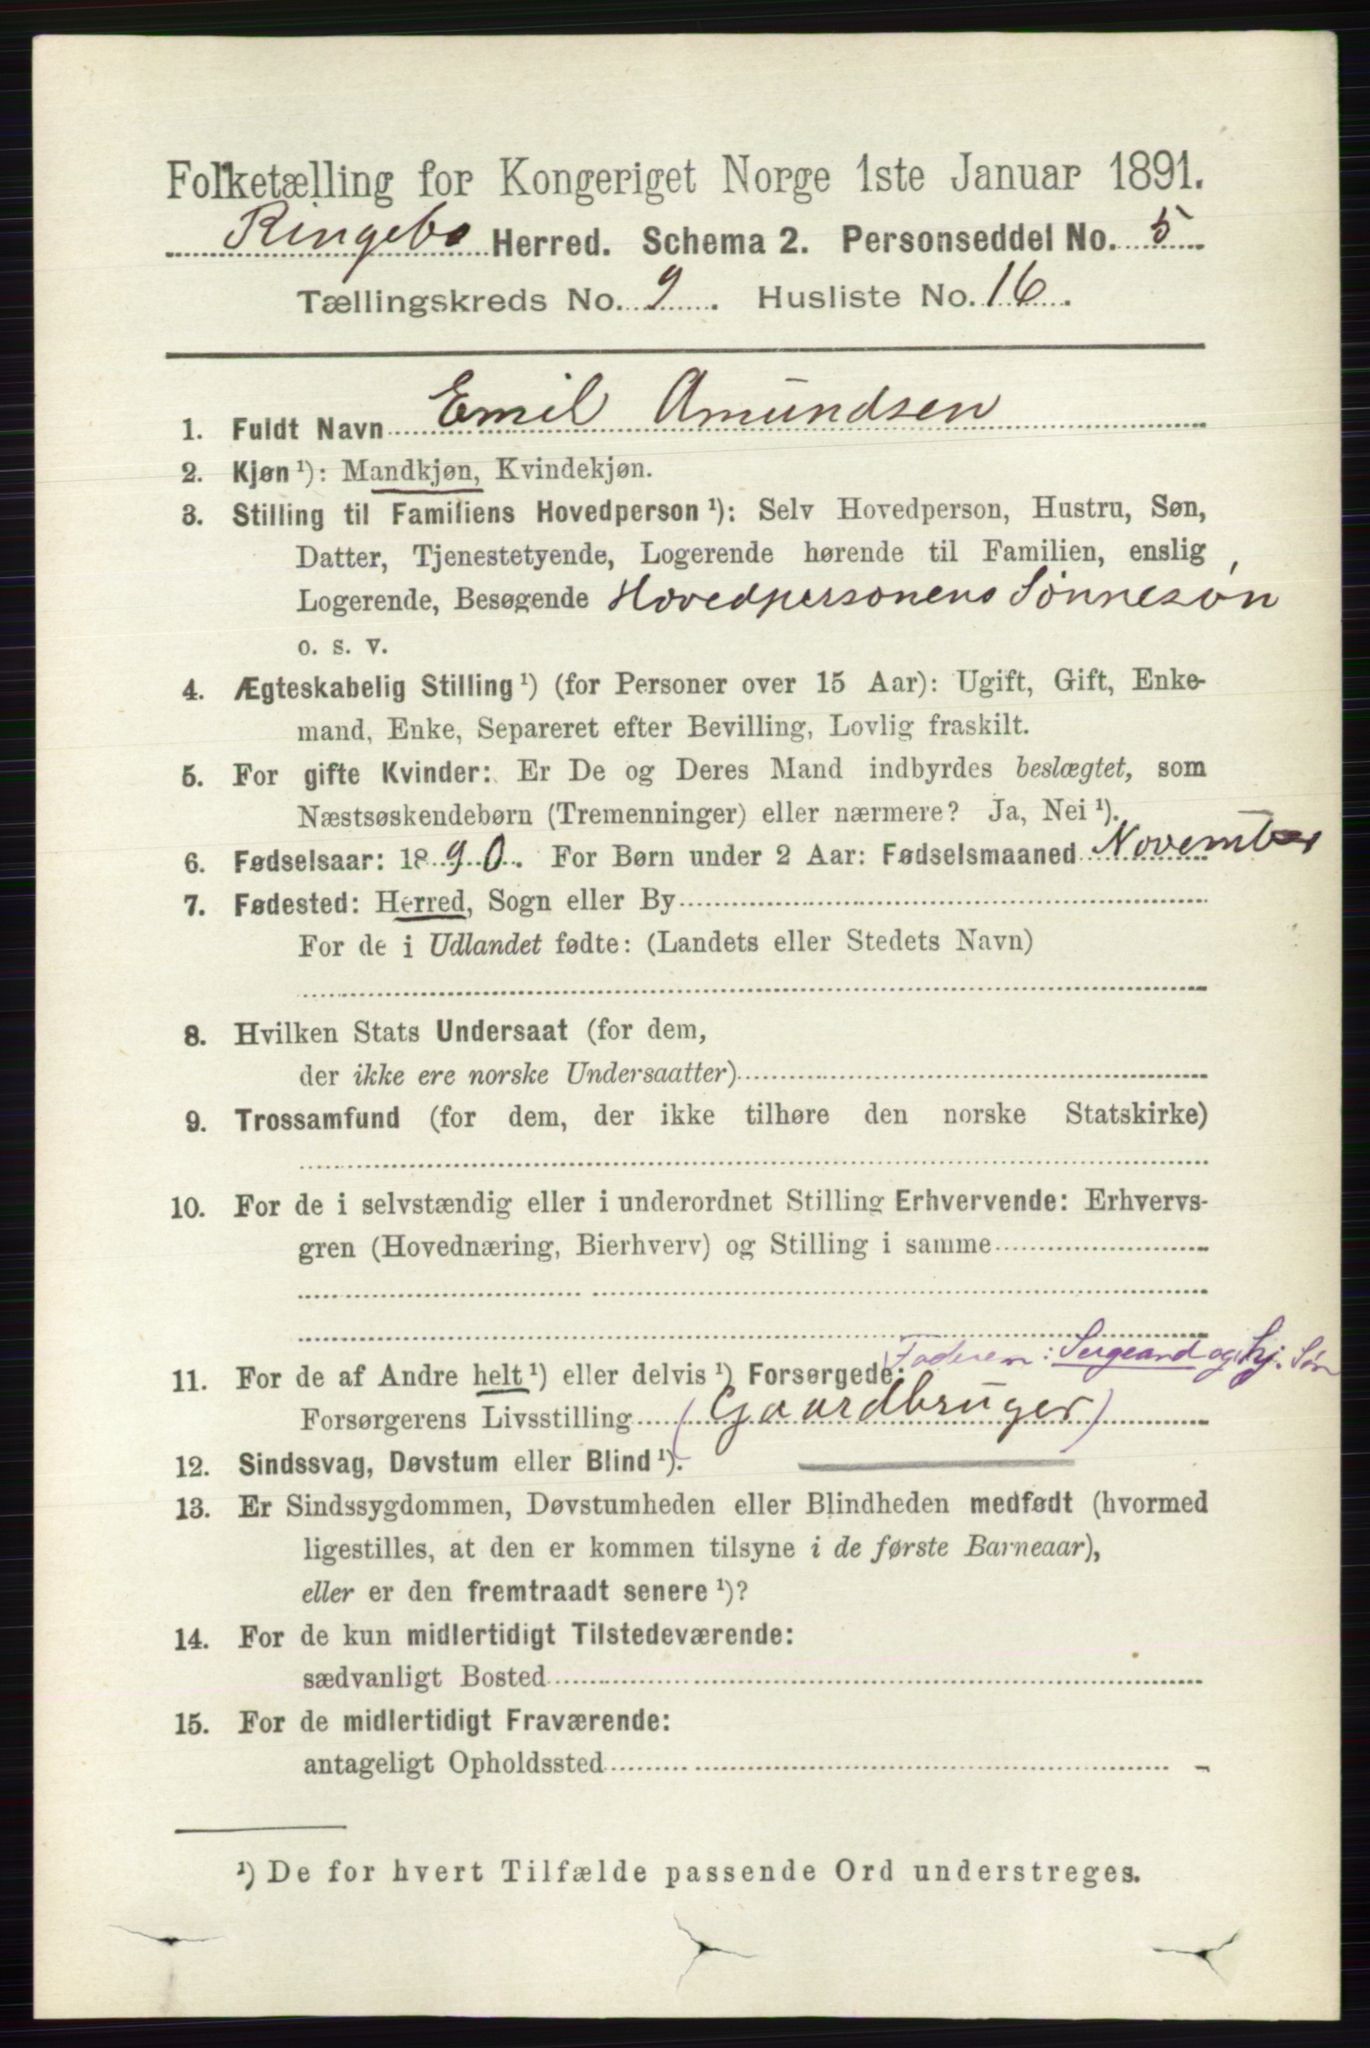 Folketælling for Kongeriget Norge 1ste Januar 1891.
Ringebo Herred. Schema 2. Personseddel No. 5
Tællingskreds No. 9. Husliste No. 16.
1. Fuldt Navn Emil Amundsen
2. Kjøn ¹): Mandkjøn, Kvindekjøn.
3. Stilling til Familiens Hovedperson ¹): Selv Hovedperson, Hustru, Søn,
Datter, Tjenestetyende, Logerende hørende til Familien, enslig
Logerende, Besøgende Hovedpersonens Sønnesøn
o. s. v.
4. Ægteskabelig Stilling ¹) (for Personer over 15 Aar): Ugift, Gift, Enke-
mand, Enke, Separeret efter Bevilling, Lovlig fraskilt.
5. For gifte Kvinder: Er De og Deres Mand indbyrdes beslægtet, som
Næstsøskendebørn (Tremenninger) eller nærmere? Ja, Nei ¹).
6. Fødselsaar: 1890. For Børn under 2 Aar: Fødselsmaaned November
7. Fødested: Herred, Sogn eller By
For de i Udlandet fødte: (Landets eller Stedets Navn)
8. Hvilken Stats Undersaat (for dem,
der ikke ere norske Undersaatter)
9. Trossamfund (for dem, der ikke tilhøre den norske Statskirke)
10. For de i selvstændig eller i underordnet Stilling Erhvervende: Erhvervs-
gren (Hovednæring, Bierhverv) og Stilling i samme
Faderen: Sergeand og Hj. Søn
11. For de af Andre helt ¹) eller delvis ¹) Forsørgede:
Forsørgerens Livsstilling (Gaardbruger)
12. Sindssvag, Døvstum eller Blind ¹).
13. Er Sindssygdommen, Døvstumheden eller Blindheden medfødt (hvormed
ligestilles, at den er kommen tilsyne i de første Barneaar),
eller er den fremtraadt senere ¹)?
14. For de kun midlertidigt Tilstedeværende:
sædvanligt Bosted
15. For de midlertidigt Fraværende:
antageligt Opholdssted
¹) De for hvert Tilfælde passende Ord understreges.